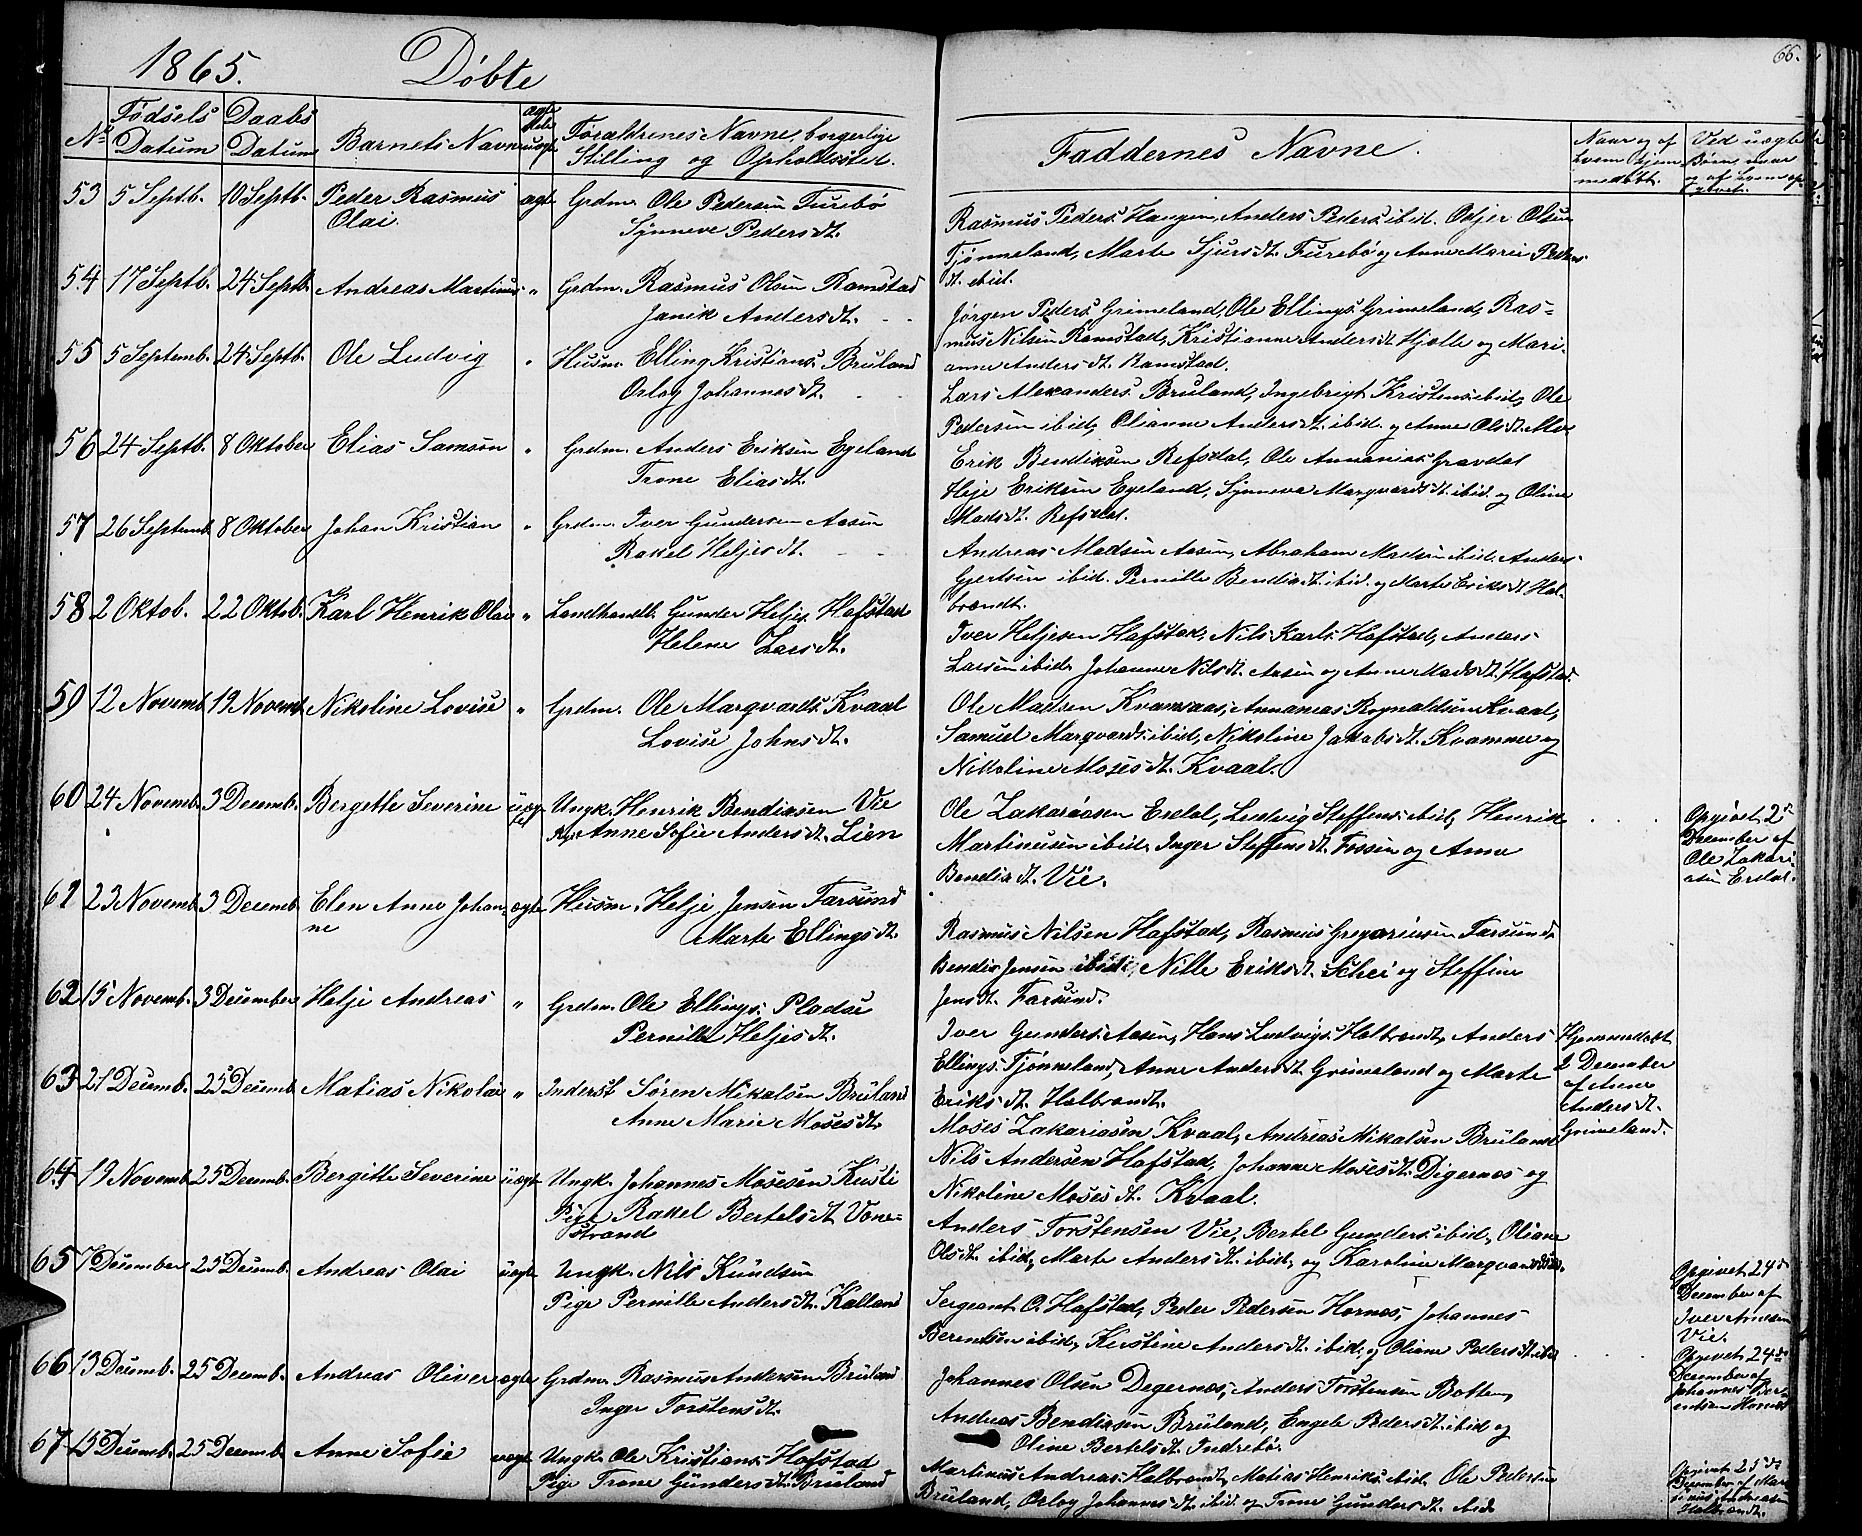 1865. Døbte
66.
No Fødsels Datum Daabs Datum Barnets Navn ægte eller uægte Forældrenes Navne, borgerlige Stilling og Opholdssted.
Faddernes Navne.
Naar og af hvem hjemmedøbt.
Ved uægte Børn, naar og af hvem opgivet.
53 5 Septb. 10 Septb. Peder Rasmus ægte Grdm. Ole Pedersen Furebø
Olai. Synneve Pedersdt.
Rasmus Peders. Haugen, Anders Peders. ibid. Odjer Olsen
Tjønneland, Marte Sjursdt. Furebø og Anne Marie Peders-
dt. ibid.
54 17 Septb. 24 Septb. Andreas Martinus " Grdm. Rasmus Olsen Ramstad
Janik Andersdt.
Jørgen Peders. Grimeland, Ole Ellings. Grimeland, Ras-
mus Nilsen Ramstad, Kristianne Andersdt. Hjelle og Mari-
anne Andersdt. Ramstad.
55 5 Septemb. 24 Septb. Ole Ludvig " Husm. Elling Kristians. Bruland
Orlog Johannesdt.
Lars Alexanders. Bruland, Ingebrigt Kristens. ibid, Ole
Pedersen ibid, Olianne Andersdt. ibid. og Anne Olsdt.
56 24 Septb. 8 Oktober Elias Samson " Grdm. Anders Eriksen Egeland
Trone Eliasdt.
Erik Bendiksen Refsdal, Ole Annanias. Gravdal
Helje Eriksen Egeland, Synneva Marqvardsdt. ibid. og Oline
Madsdt. Refsdal.
57 26 Septemb. 8 Oktober Johan Kristian " Grdm. Iver Gundersen Aasen
Rakel Heljesdt.
Andreas Madsen Aasen, Abraham Madsen ibid. Anders
Gjertsen ibid. Pernille Bendixdt. ibid. og Marte Eriksdt. Hal-
brendt.
58 2 Oktob. 22 Oktob. Karl Henrik Olai " Landhandl. Gunder Heljes. Hafstad
Helene Larsdt.
Iver Heljesen Hafstad, Nils Karls. Hafstad, Anders
Larsen ibid. Johanne Nilsdt. Aasen og Anne Madsdt. Hafstad.
59 12 Novemb. 19 Novemb. Nikoline Lovise " Grdm. Ole Marqvards. Kvaal
Lovise Johnsdt.
Ole Madsen Kvamaas, Annanias Rognaldsen Kvaal,
Samuel Marqvards. ibid, Nikoline Jakobsdt. Kvamme og
Nikoline Mosesdt. Kvaal.
60 24 Novemb. 3 Decemb. Bergitte Severine uægte Ungk. Henrik Bendixsen Vie
Pige Anne Sofie Andersdt. Lien
Ole Zakariasen Erdal, Ludvig Steffens. ibid, Henrik
Martinusen ibid, Inger Steffensdt. Fossen og Anne
Bendixdt. Vie.
Opgivet 2d
December af
Ole Zakari-
asen Erdal.
61 23 Novemb. 3 Decemb. Elen Anne Johan- ægte Husm. Helje Jensen Farsund
ne Marte Ellingsdt.
Rasmus Nilsen Hafstad, Rasmus Gregoriusen Farsund,
Bendix Jensen ibid, Nille Eriksdt. Schei og Steffine
Jensdt. Farsund.
62 15 Novemb. 3 December Helje Andreas " Grdm. Ole Ellings. Pladse
Pernille Heljesdt.
Iver Gunders. Aasen, Hans Ludvigs. Halbrendt, Anders
Ellings. Tjønneland, Anne Andersdt. Grimeland og Marte
Eriksdt. Halbrendt.
Hjemmedøbt
2 December
af Anne
Andersdt.
Grimeland.
63 21 Decemb. 25 Decemb. Matias Nikolai " Inderst Søren Mikalsen Bruland
Anne Marie Mosesdt.
Moses Zakariasen Kvaal, Andreas Mikalsen Bruland
Nils Andersen Hafstad, Johanne Mosesdt. Digernes og
Nikoline Mosesdt. Kvaal.
64 19 Novemb. 25 Decemb. Bergitte Severine uægte Ungk. Johannes Mosesen Kusli
Pige Rakel Bertelsdt. Vone-
strand
Anders Torstensen Vie, Bertel Gunders. ibid, Oliane
Olsdt. ibid, Marte Andersdt. ibid, og Karoline Marqvardsdt. ibid.
Opgivet 24d
December af
Iver Arnesen
Vie.
65 7 December 25 Decemb. Andreas Olai uægte Ungk. Nils Knudsen
Pige Pernille Andersdt. Kalland
Sergeant O. Hafstad, Peder Pedersen Hornes, Johannes
Berentsen ibid, Kerstine Andersdt. ibid. og Oliane Pedersdt. ibid
Opgivet 24de
December af
Johannes Ber-
entsen Hornes
66 13 Decemb. 25 Decemb. Andreas Oliver ægte Grdm. Rasmus Andersen Bruland
Inger Torstensdt.
Johannes Olsen Degernes, Anders Torstensen Botten,
Andreas Bendixsen Bruland, Engele Pedersdt. ibid og
Oline Bertelsdt. Indrebø.
67 15 Decemb. 25 Decemb. Anne Sofie uægte Ungk. Ole Kristians. Hafstad
Pige Trone Gundersdt. Bruland
Martinus Andreas. Halbrendt, Matias Henriks. ibid. Ole Pedersen
Bruland, Orlog Johannesdt. ibid. og Trone Gundersdt. ibid
Opgivet 25de
December af Mar-
tinus Andreasen
Halbrendt.